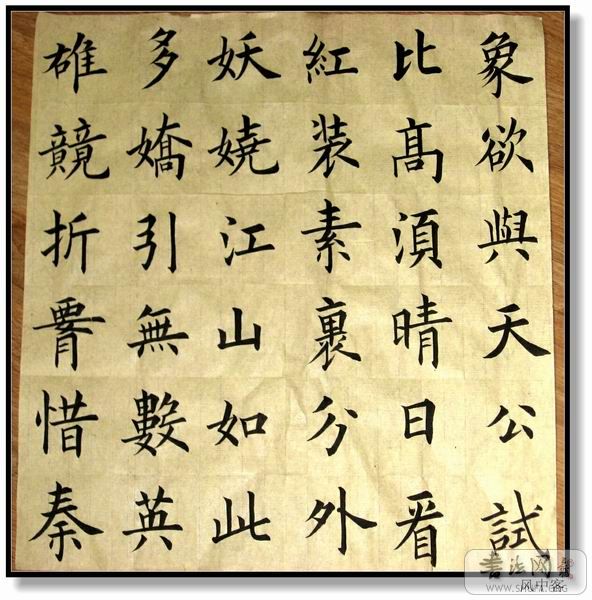 象欲與天公試
比髙湏晴日看
紅装素裹分外
妖嬈江山如此
多嬌引無數英
雄競折腰惜秦
风中客